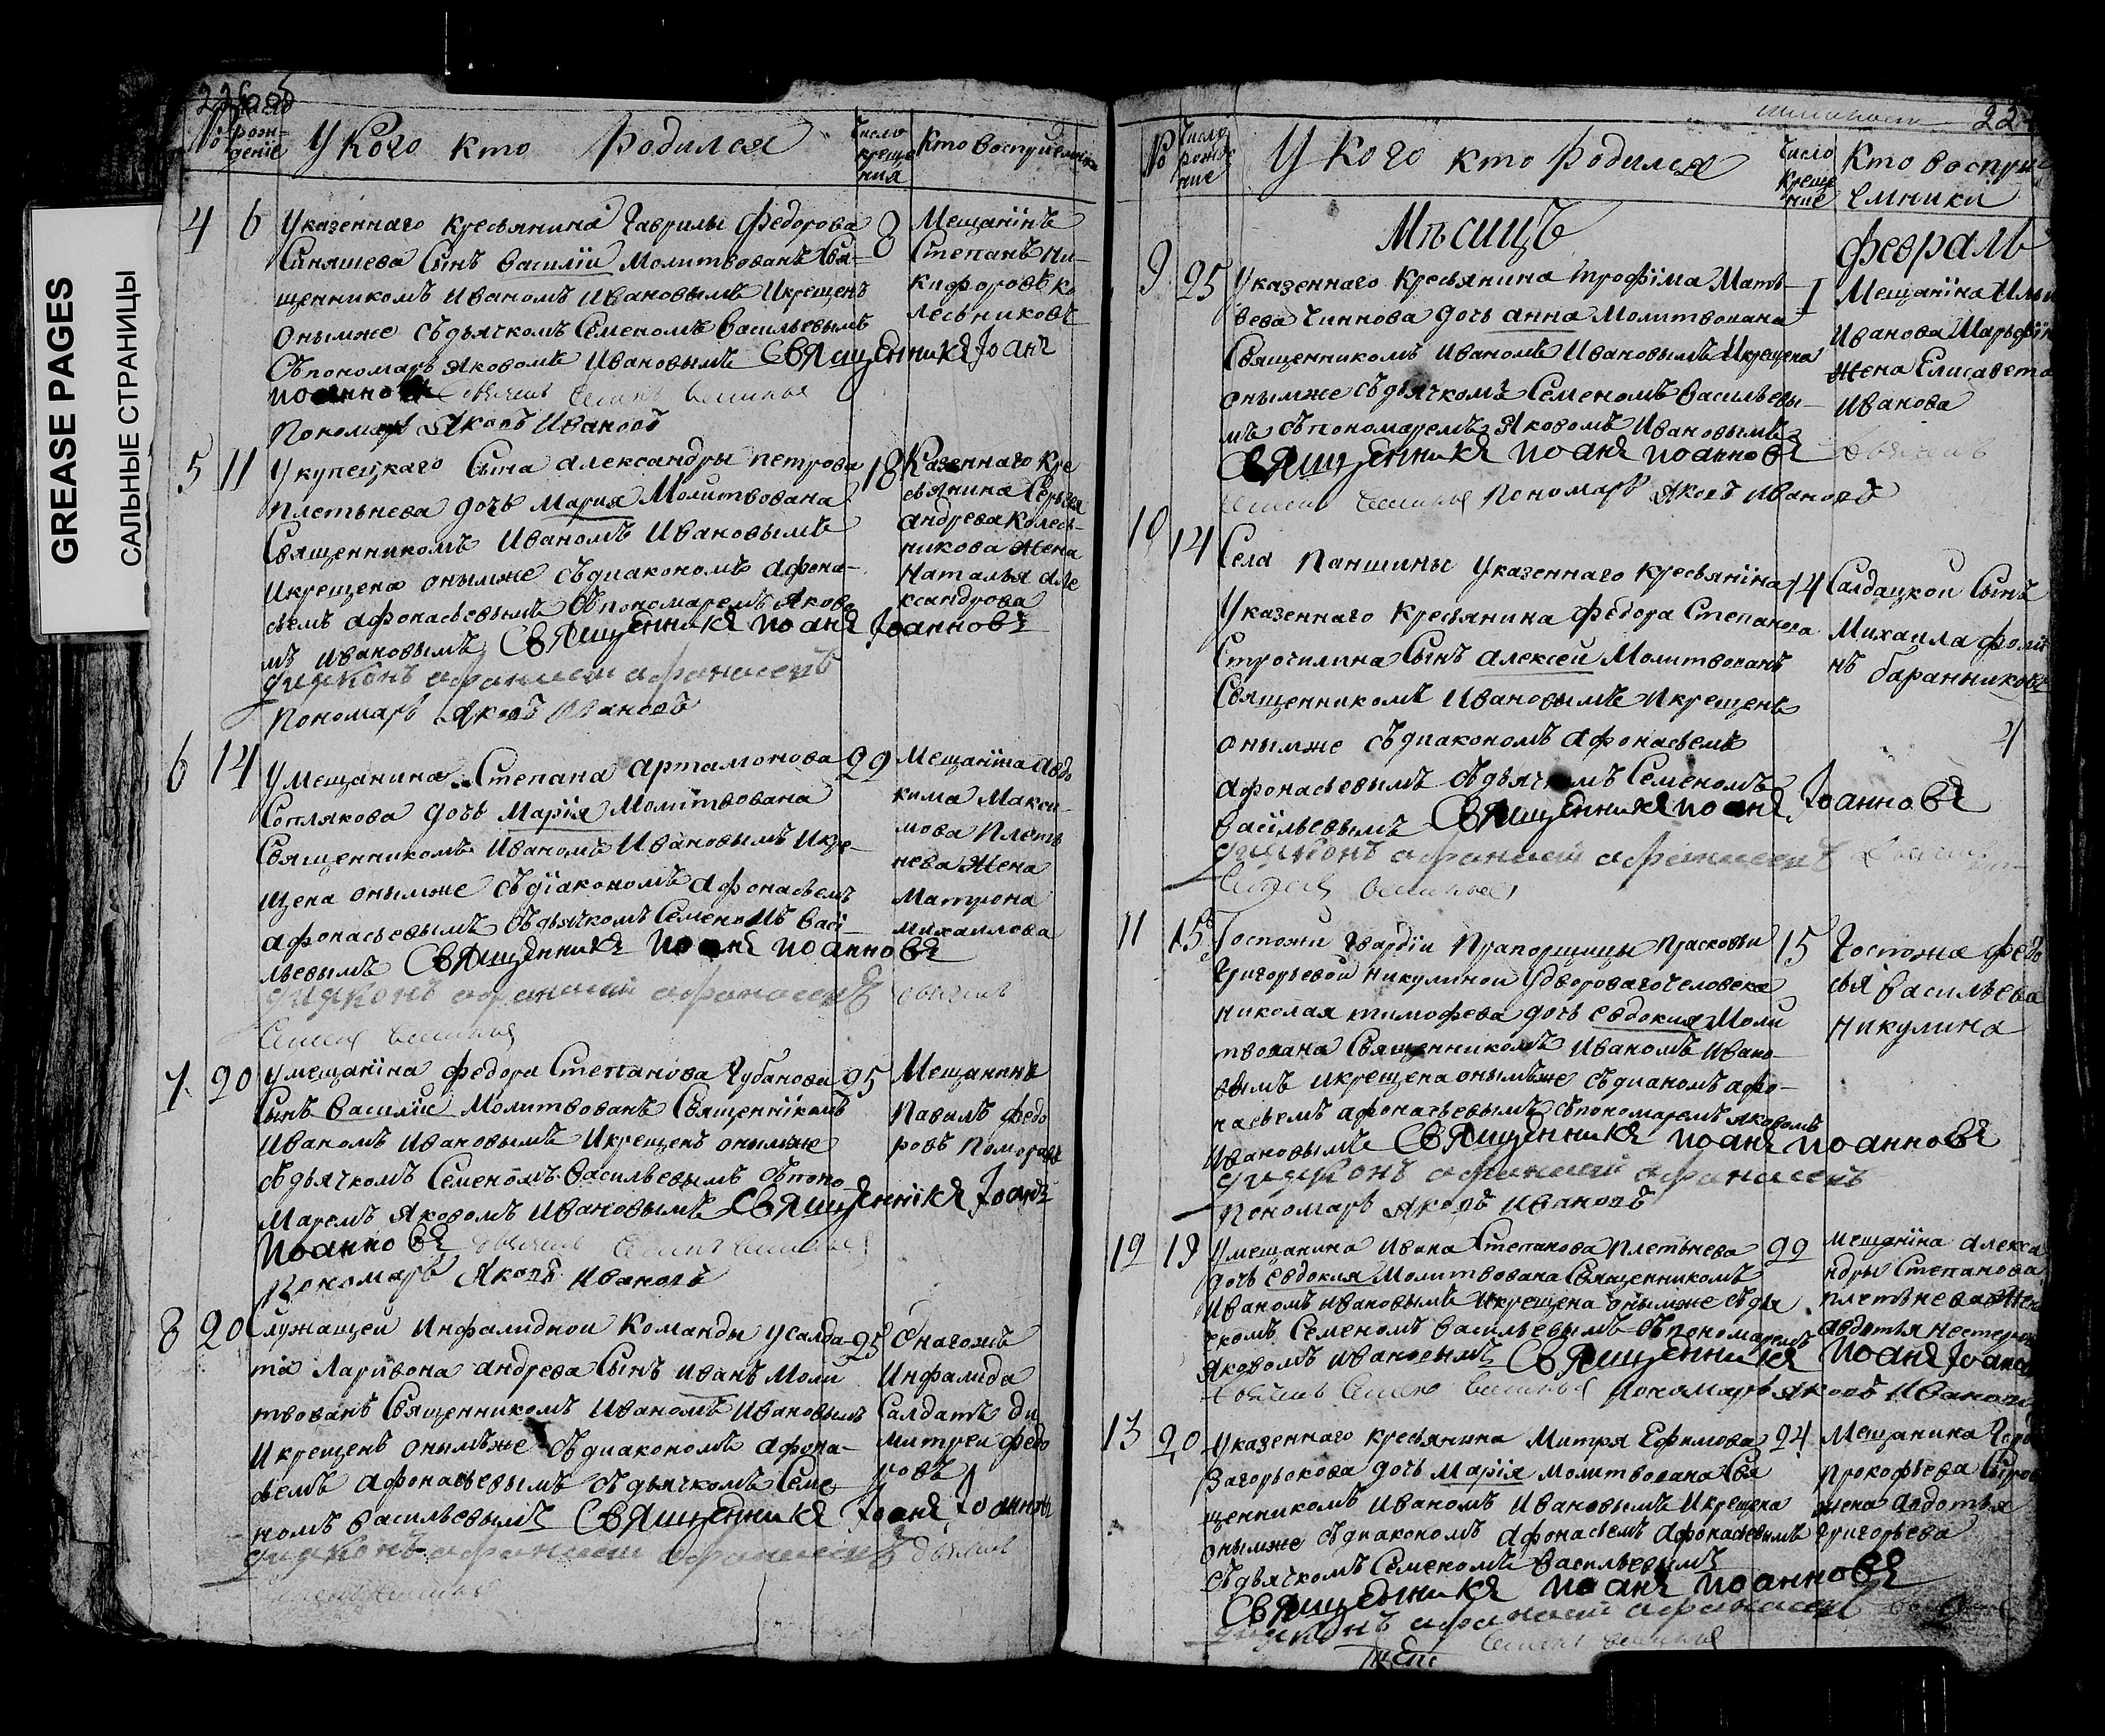 GREASE PAGES
САЛЬНЫЕ СТРАНИЦЫ
Число
№ рож-
дение
У кого кто родился
Число
креще
ния
Кто восприемники
4
6
У казеннаго кресьянина Гаврилы Федорова
Синяшева Сынъ Василiи Молитвованъ Свя-
щенникомъ Иваномъ Ивановымъ Икрещенъ
Онымже съдьячкомъ Семеномъ Васильевымъ
Съпономарь Яковомъ Ивановымъ Священникъ Iоанъ
иоанновъ
Пономарь Яковъ Ивановъ
8
Мещанiнъ
Степанъ Ни-
кифоровъ Ко
лесьниковъ
5
11
У купецкаго Сына александры петрова
плетьнева дочь Мария Молитвована
Священникомъ Иваномъ Ивановымъ
Икрещена онымже съдиакономъ афона-
сьемъ афонасьевымъ Съпономаремъ Яково
мъ Ивановымъ Священникъ иоанъ Iоанновъ
диаконъ афанасеи афанасевъ
Пономарь Яковъ Ивановъ
18
Казеннаго кре
сьянина Серьгея
андрева колесь-
никова Жена
Наталья але
ксандрова
6
14
У мещанина Степана артамонова
Соплякова дочь Марiя Молитвована
Священникомъ Иваномъ Ивановымъ Икре-
щена онымже съдiакономъ афонасьемъ
афонасьевымъ съдьячкомъ Семеномъ Васi-
льевымъ Священникъ иоанъ иоанновъ
диаконъ афанасеи афанасевъ
22
Мещанiна авдо
кима Макси-
мова Плеть
нева Жена
Матрона
михаилова
7
20
У мещанiна федора Степанова Губанова
Сынъ Василiи Молитвованъ Священнiкомъ
Иваномъ Ивановымъ Икрещенъ онымже
съдьячкомъ Семеномъ Васильевымъ Съпоно
Маремъ Яковомъ Ивановымъ Священнiкъ Iоанъ
иоанновъ
Пономарь Яковъ Ивановъ
25
Мещанинъ
Павилъ Федо
ровъ
8
20
Служащеи Инфалиднои Команды усалда-
та Ларивона андрева Сынъ Иванъ Моли
твованъ Священникомъ Иваномъ Ивановымъ
Икрещенъ онымъже Съдиакономъ афона-
сьемъ афонасьевымъ съдьячкомъ Семе-
номъ Васильевымъ Священникъ Iоанъ Iоанновъ
диаконъ афанасеи афанасевъ
25
Онагожъ
Инфалида
Салдатъ Ди
митреи Федо
ровъ
№
Число
рожде
ние
У кого кто родился
Число
креще
ние
Кто восприе
емники
Мѣсицъ
Февраль
9
25
У казеннаго Кресьянина трофiма Матв-
вева Чиннова дочь анна Молитвована
Священникомъ Иваномъ Ивановымъ Икрещена
онымже съдьячкомъ Семеномъ Васильевы-
мъ съпономаремъ Яковомъ Ивановымъ
Священникъ иоанъ иоанновъ
Пономарь Яковъ Ивановъ
1
Мещанiна Ильи
Иванова
Жена Елисавета
Иванова
10
14
Села Паншины Указеннаго кресьянiна
Указеннаго кресьянина Федора Степанова
Строчилина Сынъ алексеи Молитвованъ
Священникомъ Ивановымъ Икрещенъ
онымже съдиакономъ афонасьемъ
афонасьевымъ съдьячкомъ Семеномъ
Васiльевымъ Священникъ иоанъ Iоанновъ
диаконъ афанасеи афанасевъ
14
Салдацкои Сынъ
Михаила
Баранниковъ
11
15
Госпожи Гвардiи Прапорщицы Прасковьи
Григорьевои Никулинои Удвороваго человека
николая тимофева дочь евдокия Моли
твована Священникомъ Иваномъ Ивано-
вымъ икрещена онымъже съдианомъ афо-
насьемъ афонасьевымъ съпономаремъ яковомъ
Ивановымъ Священникъ иоанъ иоанновъ
диаконъ афанасеи афанасевъ
Пономарь Яковъ Ивановъ
15
Госпожа федо
сья Васильева
Никулина
12
19
У мещанина Ивана Степанова Плетьнева
дочь Евдокия Молитвована Священникомъ
Иваномъ Ивановымъ Икрещена онымже съдья
чкомъ Семеномъ Васильевымъ Съпономаремъ
Яковомъ Ивановымъ Священникъ иоанъ Iоанновъ
Пономарь Яковъ Ивановъ
22
мещанiна алекса
ндры Степанова
плетьнева Жена
авдотья
13
20
У казеннаго кресьянина Митря Ефимова
Загорьокова дочь Марiя молитвована Свя
щенникомъ Иваномъ Ивановымъ Икрещена
онымже съдиакономъ афонасьемъ афонасьевымъ
съдьячкомъ Семеномъ Васильевымъ
Священникъ иоанъ иоанновъ
диаконъ афанасеи афанасевъ
24
Мещанина
Прокофьева
жена авдотья
григорьева